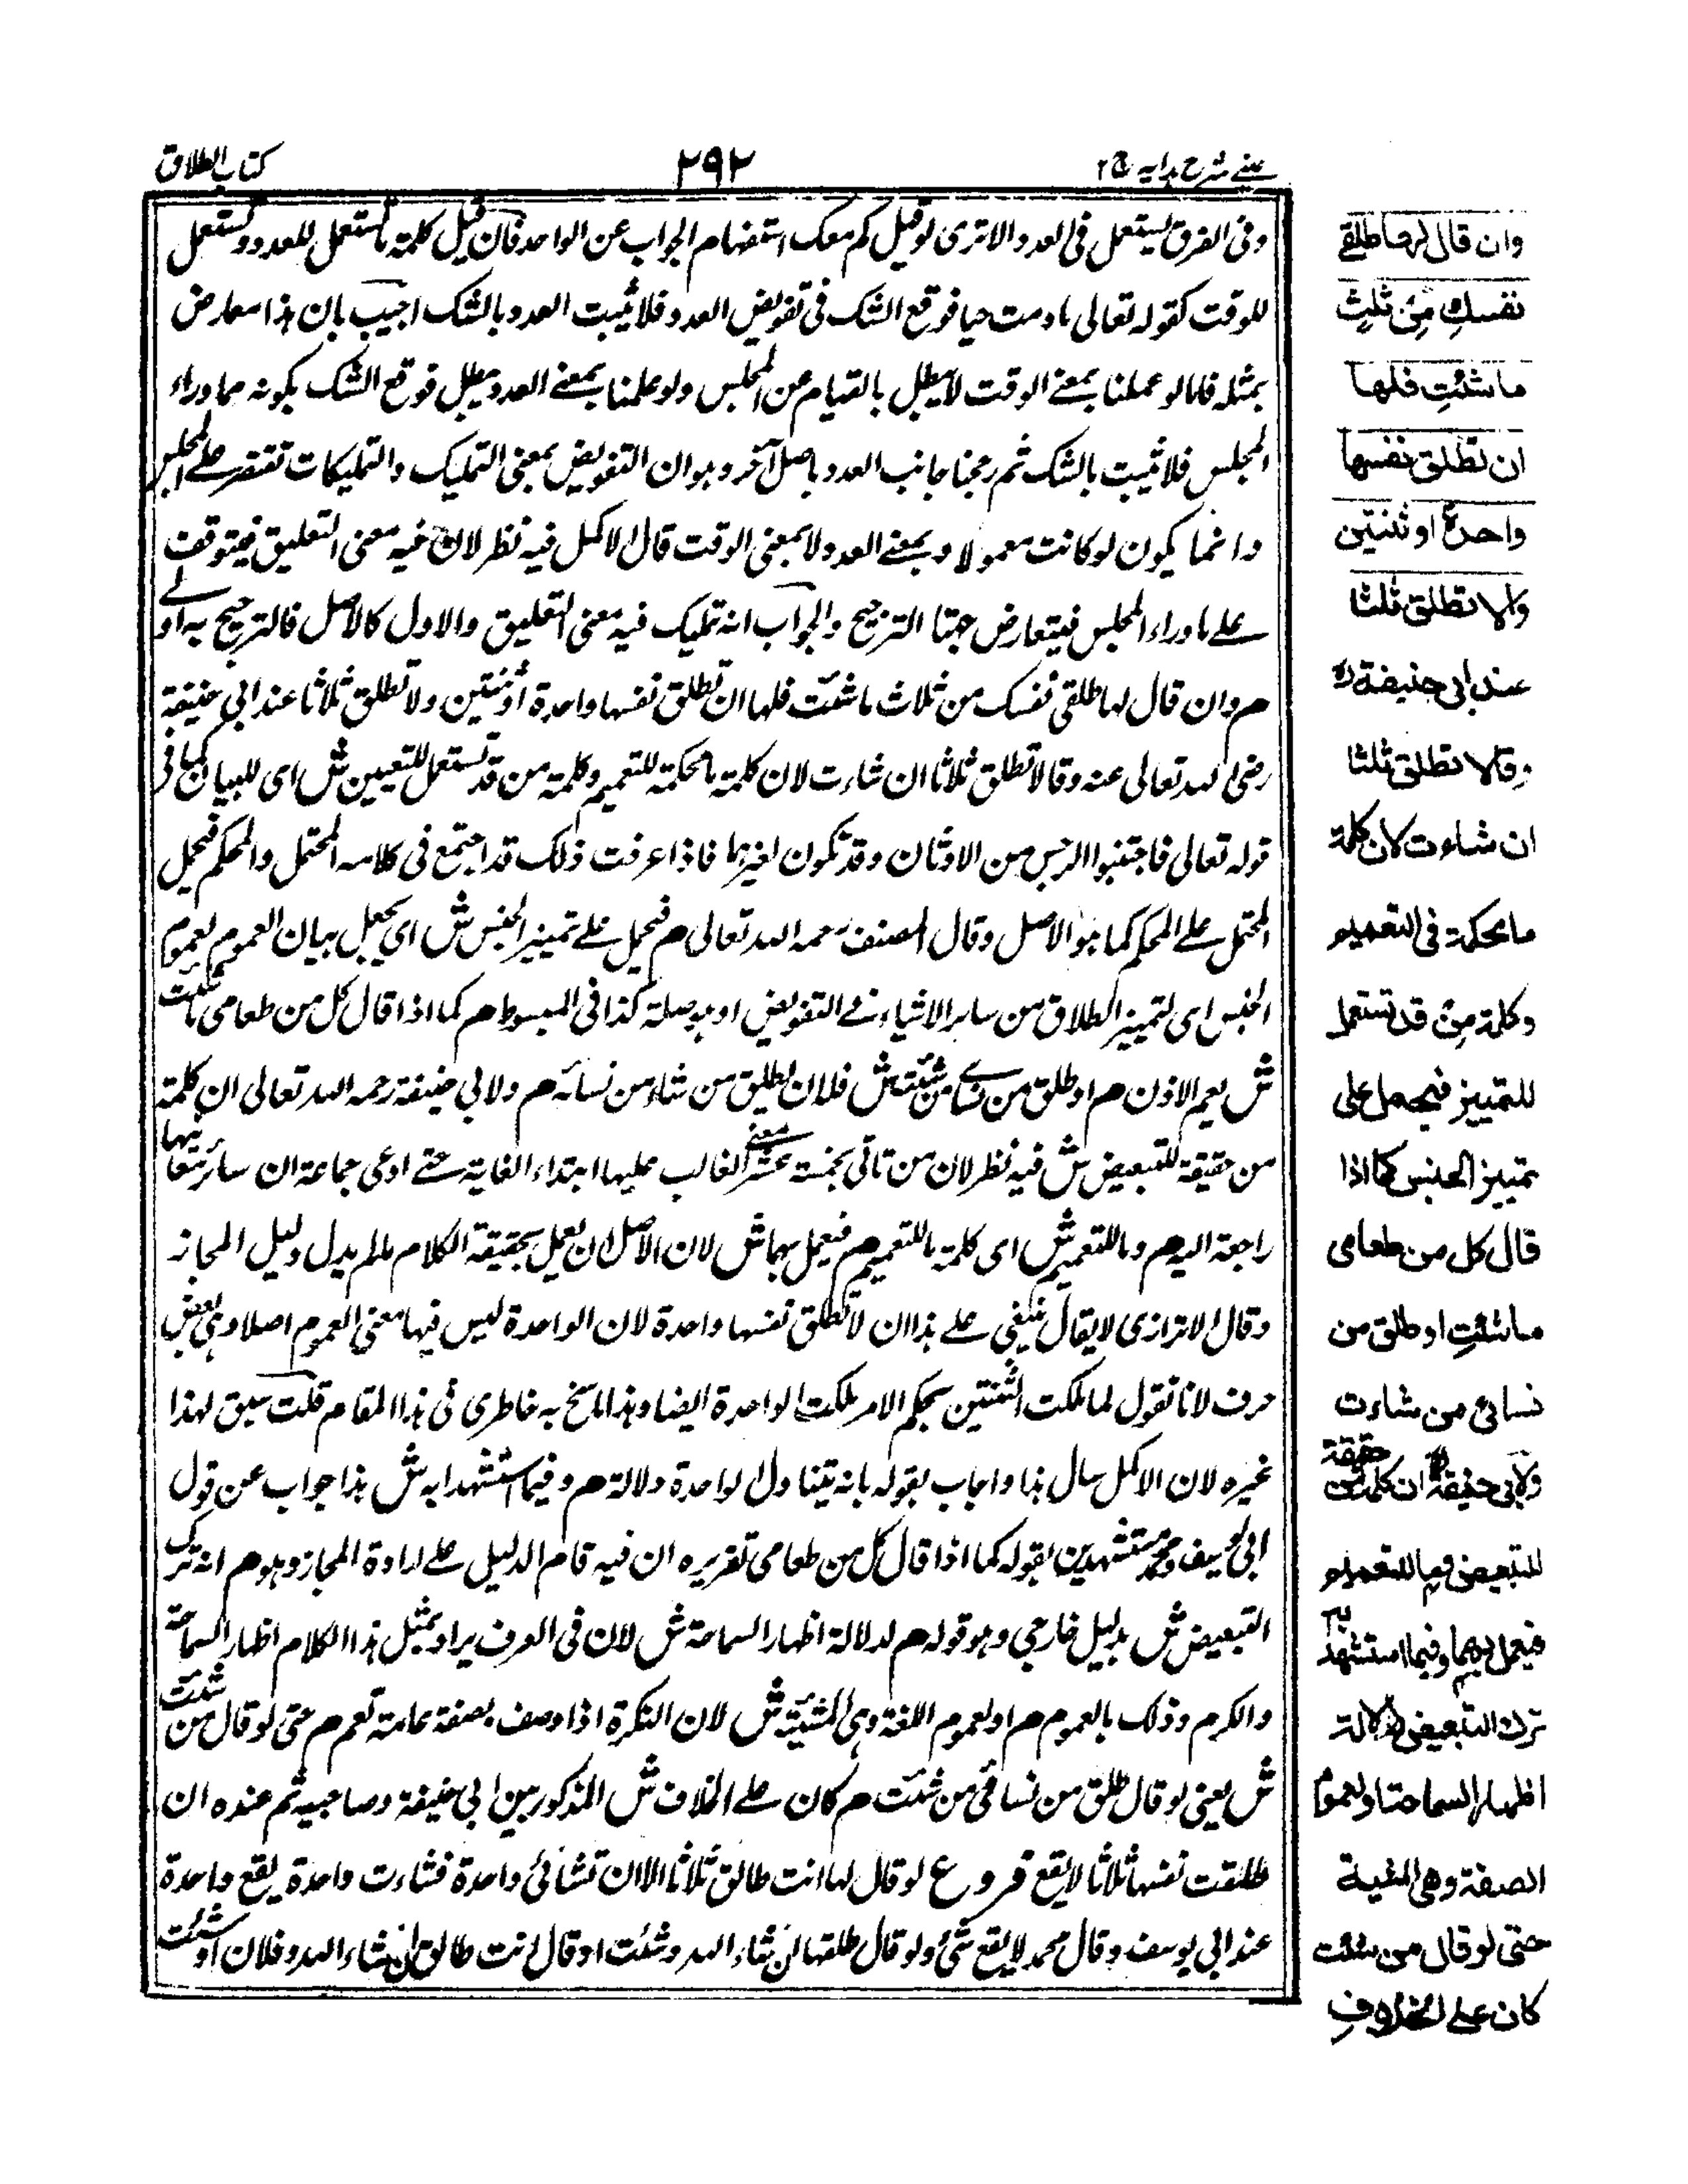 عينے شرح ہدايہ ج ٢
٢٩٢
كتاب الطلاق
وفى الفرق يستعمل فى العدد الا ترى لو قيل كم معك استفهام الجواب عن الواحد فان قيل كلمة ما تستعمل للعدد وتستعمل
للوقت كقوله تعالى ما دمت حيا فوقع الشك فى تفويض العدد فلا يثبت العدد بالشك اجيب بان هذا معارض
بمثله فلما لو عملنا بمعنے الوقت لا يبطل بالقيام عن المجلس ولو علمنا بمعنے العدد يبطل فوقع الشك بكونه مما وراء
المجلس فلا يثبت بالشك ثم رجحنا جانب العدد باصل آخر وهو ان التفويض بمعنى التمليك والتمليكات تقتصر علے المجلس
وانما يكون لو كانت معمولا وبمعنے العدد ولا بمعنى الوقت قال الاكمل فيه نظر لان فيه معنى التعليق فيتوقف
علے ما وراء المجلس فيتعارض جهتا الترجيح والجواب انه تمليك فيه معنى التعليق والاول كالاصل فالترجيح به اولے
م وان قال لها طلقى نفسك من ثلاث ما شئت فلها ان تطلق نفسها واحدة او ثنتين ولا تطلق ثلاثا عند ابى حنيفة
رضى الله تعالى عنه وقالا تطلق ثلاثا ان شاءت لان كلمة ما محكمة للتعميم وكلمة من قد تستعمل للتعيين ش اى للبيان كما فى
قوله تعالى فاجتنبوا الرجس من الاوثان وقد تكون لغيرها فاذا عرفت ذلك قد اجتمع فى كلامه المحتمل والمحكم فيحمل
المحتمل علے المحكم كما هو الاصل وقال المصنف رحمه الله تعالى م فيحمل علے تمييز الجنس ش اى يجعل بيان العموم لعموم
الجنس اى لتمييز الطلاق من ساير الاشياء فے التفويض او هو صلة كذا فى المبسوط م كما اذا قال كل من طعامى ما شئت
ش يعم الاذن م او طلق من نسائے من شئت ش فلان يطلق من شاء من نسائه م ولابى حنيفة رحمه الله تعالى ان كلمة
من حقيقة للتبعيض ش فيه نظر لان من تاتى بخمسة عشر معنى الغالب عليها ابتداء الغاية حتے ادعى جماعة ان سائر معانيها
راجعة اليه م وما للتعميم ش اى كلمة ما للتعميم م فيعمل بهما ش لان الاصل ان يعمل بحقيقة الكلام ما لم يدل دليل المجاز
وقال الاترازى لا يقال ينبغى علے هذا ان لا تطلق نفسها واحدة لان الواحدة ليس فيها معنى العموم اصلا وهى بعض
حرف لانا نقول لما ملكت الثنتين بحكم الامر ملكت الواحدة ايضا وهذا ما سنح به خاطرى فى هذا المقام قلت سبق لهذا
غيره لان الاكمل سال هذا واجاب بقوله بانه يتناول الواحدة دلالة م وفيما استشهدا به ش هذا جواب عن قول
ابى يوسف ومحمد مستشهدين بقوله كما اذا قال كل من طعامى تقريره ان فيه قام الدليل علے ارادة المجاز وهو م انه ترك
التبعيض ش بدليل خارجى وهو قوله م لدلالة اظهار السماحة ش لان فى العرف يراد بمثل هذا الكلام اظهار السماحة
والكرم وذلك بالعموم م او لعموم اللغة وهى المشيئة ش لان النكرة اذا وصف بصفة عامة تعم م حتى لو قال من شئت
ش يعنى لو قال طلق من نسائى من شئت م كان علے الخلاف ش المذكور بين ابى حنيفة وصاحبيه ثم عنده ان
طلقت نفسها ثلاثا لا يقع فروع لو قال لها انت طالق ثلاثا الا ان تشائى واحدة فشاءت واحدة يقع واحدة
عند ابى يوسف وقال محمد لا يقع شئ ولو قال طلقها ان شاء الله وشئت او قال انت طالق ان شاء الله وفلان او شئت
وان قال لها طلقے
نفسكِ مِن ثلثٍ
ما شئتِ فلها
ان تطلق نفسها
واحدة او ثنتين
ولا تطلق ثلثا
عند ابى حنيفة رح
وقالا تطلق ثلثا
ان شاءت لان كلمة
ما محكمة فى التعميم
وكلمة مِن قد تستعمل
للتمييز فيحمل على
تمييز الجنس كما اذا
قال كل من طعامى
ما شئتِ او طلق من
نسائى من شاءت
ولابى حنيفة رح ان كلمة من حقيقة
للتبعيض وما للتعميم
فيعمل بهما وفيما استشهدا به
ترك التبعيض لدلالة
اظهار السماحة او لعموم
الصفة وهى المشية
حتى لو قال من شئت
كان على الخلافِ